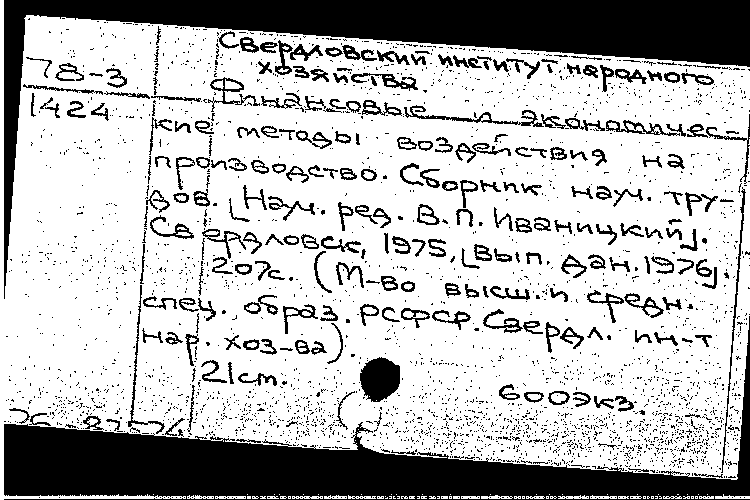 Свердловский институт народного
78-3 хозяйства.
1424 Финансовые и экономичес-
кие методы воздействия на
производство. Сборник науч. тру-
дов. [Науч. ред. В. П. Иваницкий].
Свердловск, 1975, [вып. дан. 1976].
207с. (М-во высш. и средн.
спец. образ. РСФСР. Свердл. ин-т
нар. хоз-ва).
21 cm.
600экз.